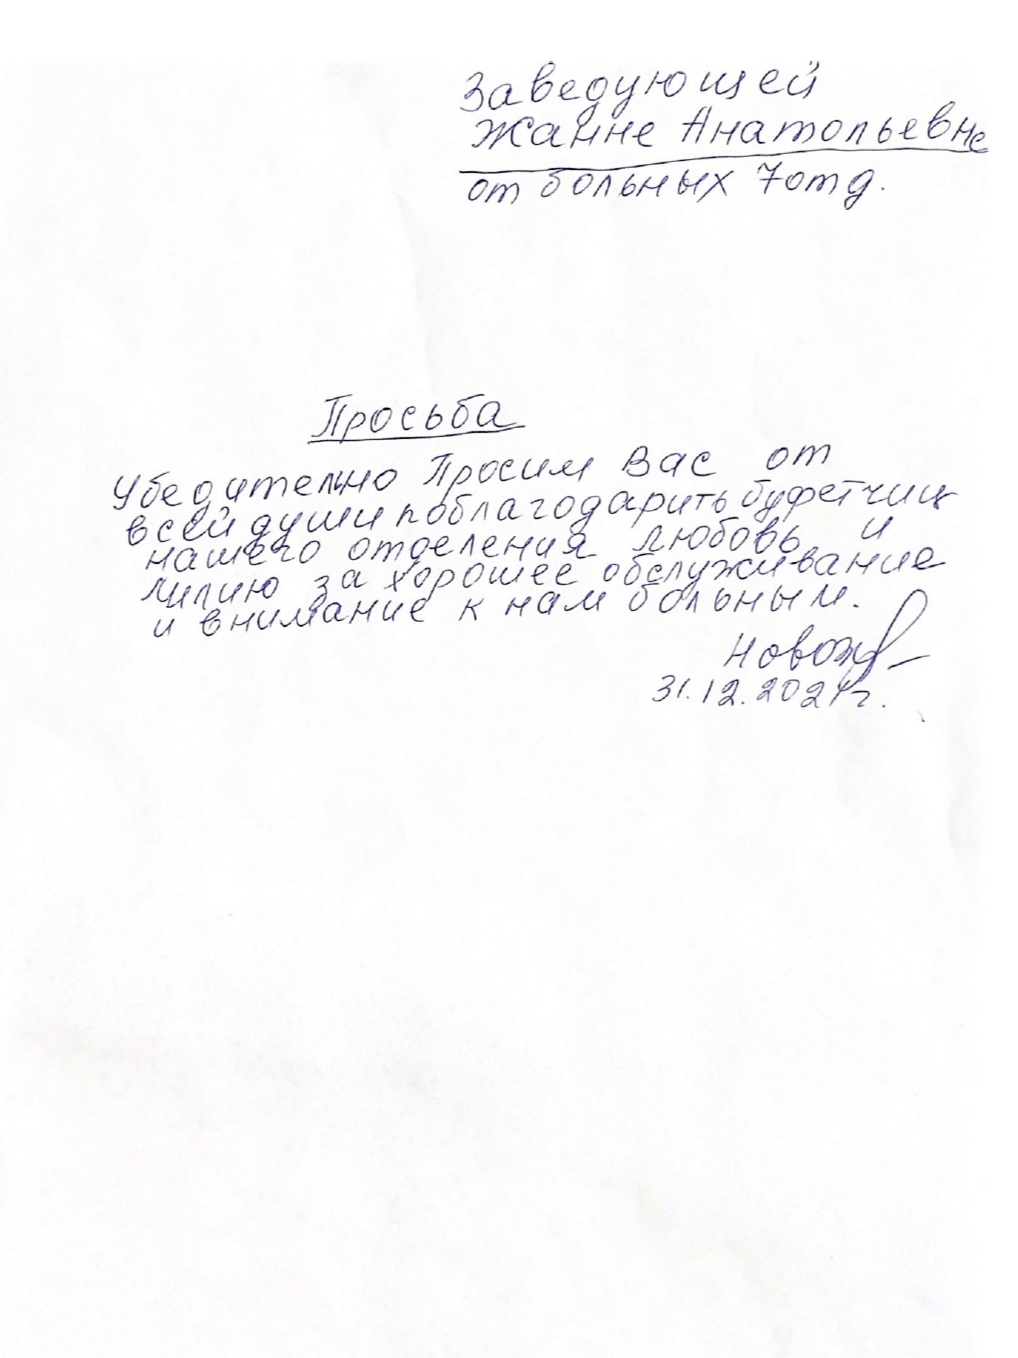 Заведующей
Жанне Анатольевне
от больных 7 отд.
Просьба
Убедительно Просим Вас от
всей души поблагодарить буфетчиц
нашего отделения Любовь и
Лилию за хорошее обслуживание
и внимание к нам больным.
31.12.2021г.